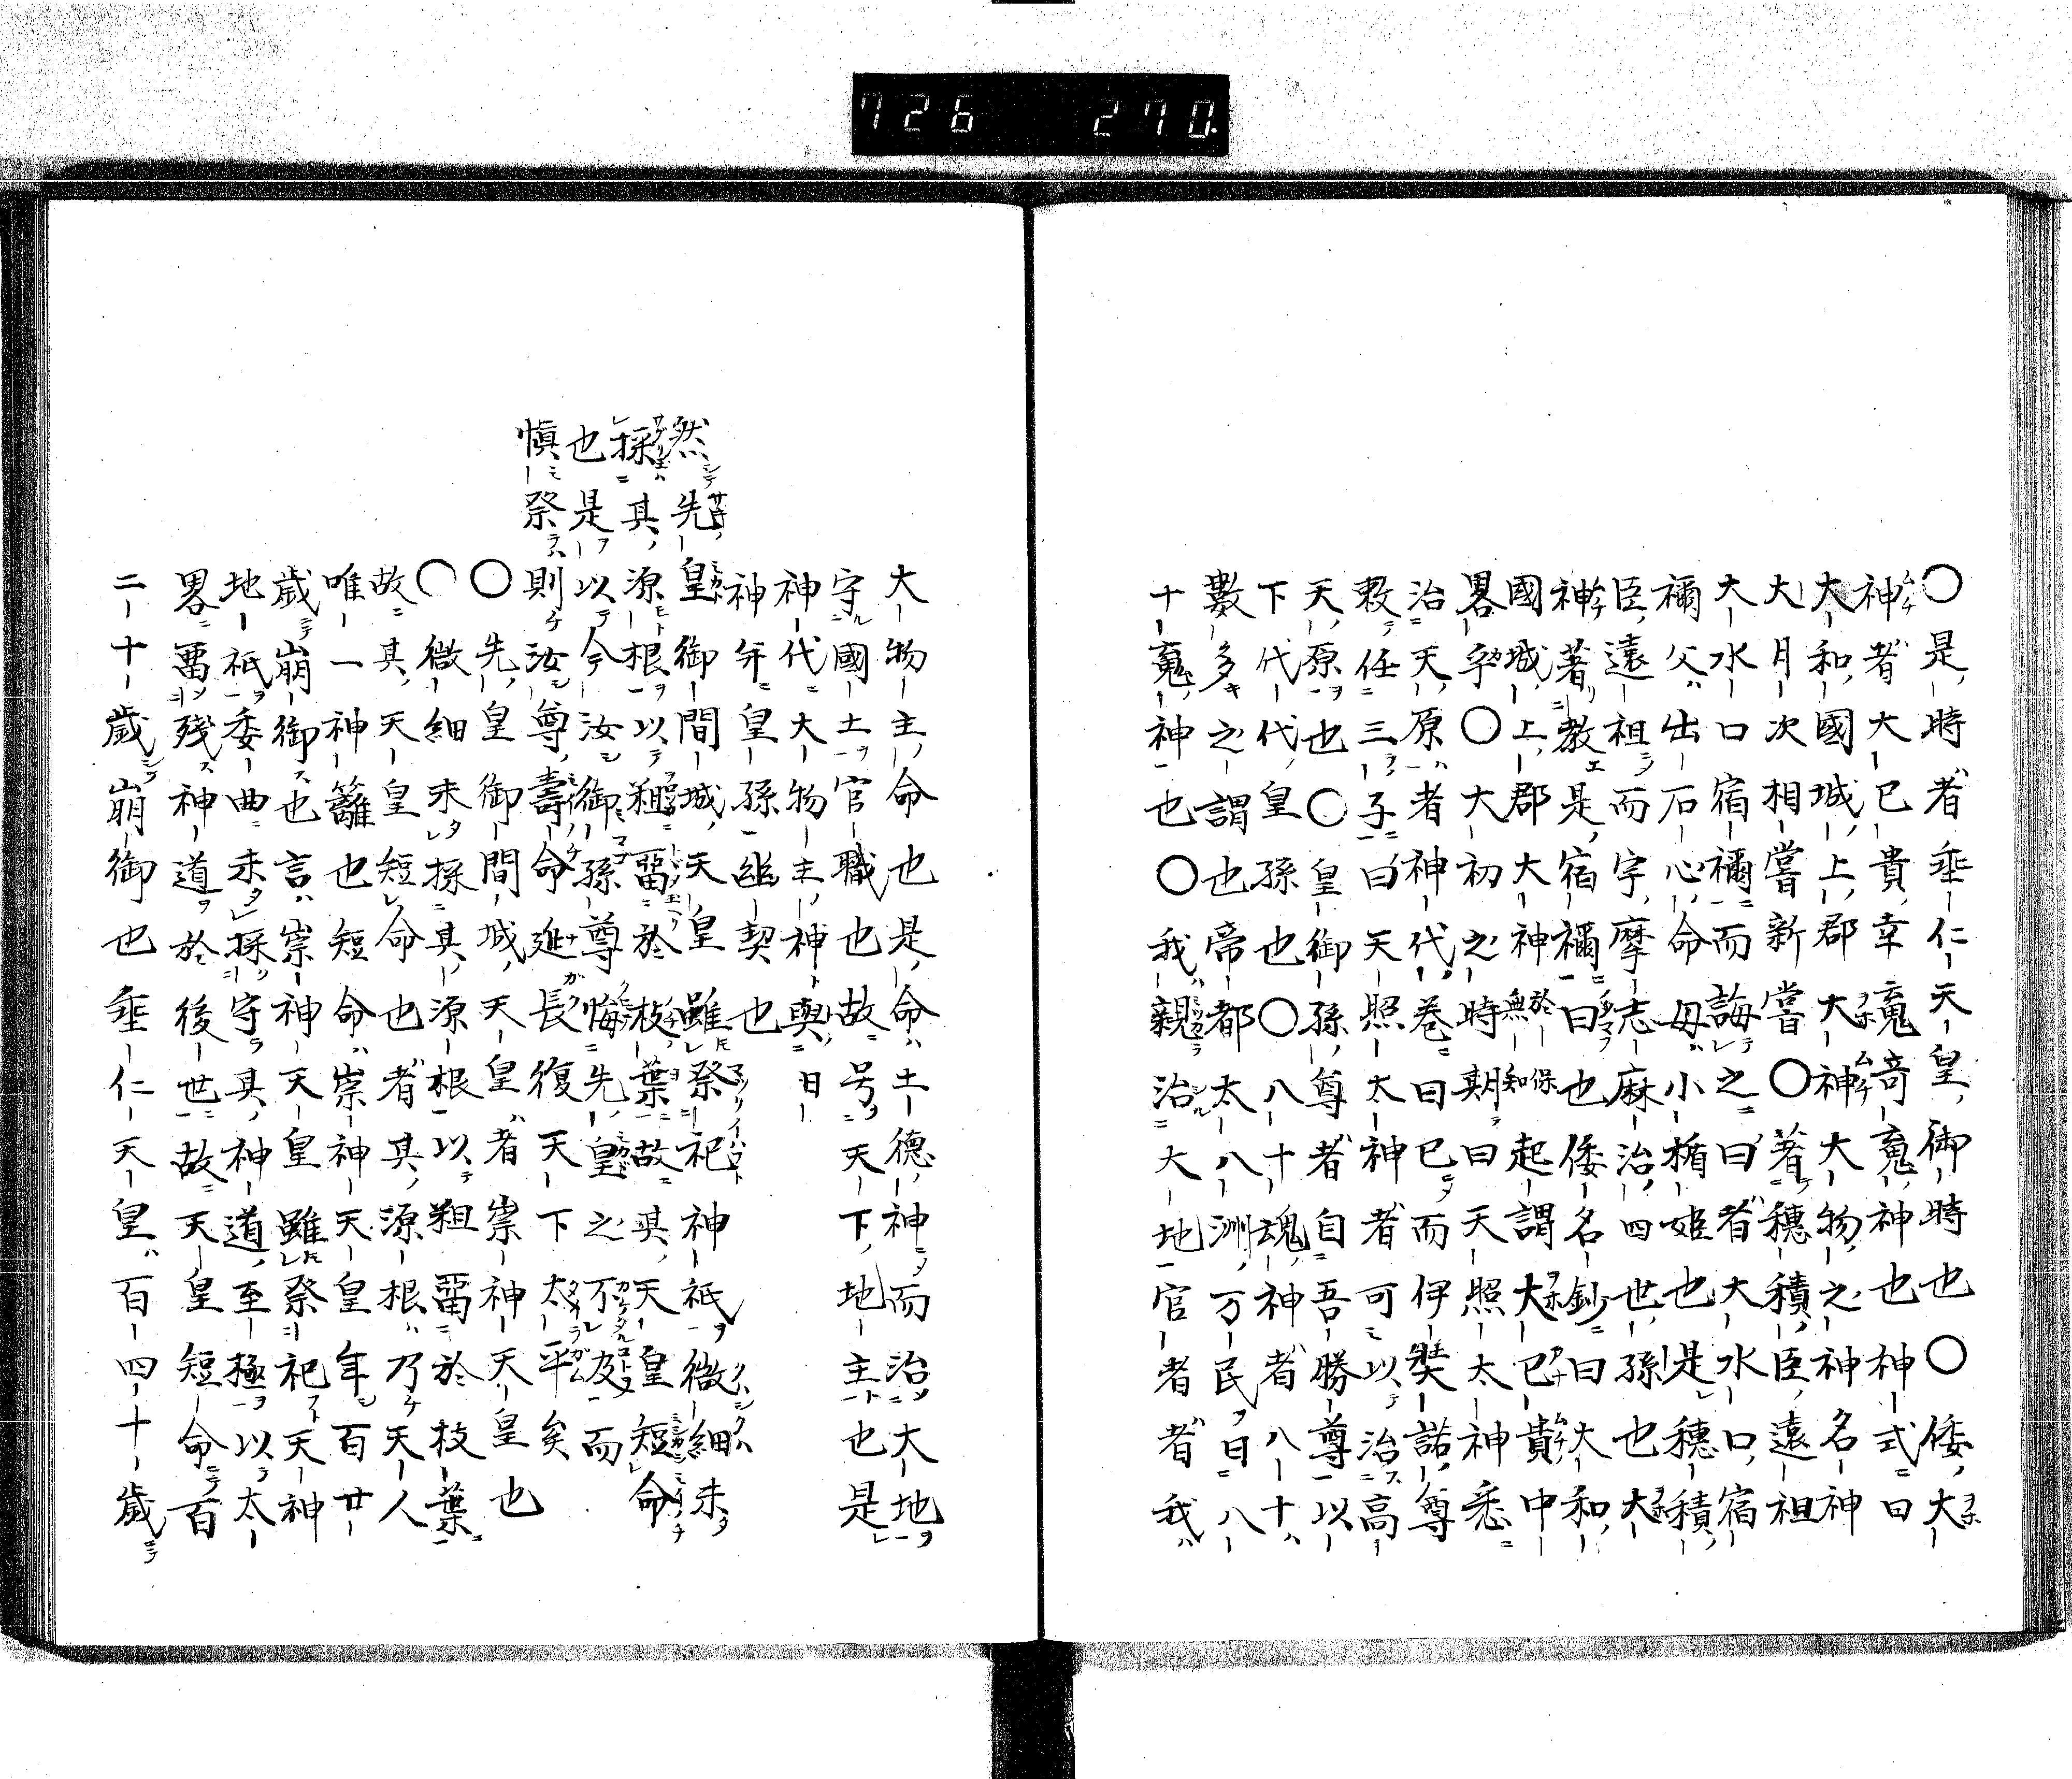 726 270
○是時者垂仁天皇御時也○倭大
神者大已貴幸䰟竒䰟神也神式曰
大和國城上郡大神大物之神名神
大月次相嘗新嘗○著穗積臣遠祖
大水口宿禰而誨之曰者大水口宿
禰父出石心命母小楯姫也是穗積
臣遠祖而字摩志麻治四世孫也大
神著教是宿禰曰也倭名鈔曰大和
國城上郡大神於保無知起謂大已貴中
畧乎○大初之時期曰天照太神悉
治天原者神代巻曰已而伊弉諾尊
敕任三子曰天照太神者可以治高
天原也○皇御孫尊者自吾勝尊以
下代代皇孫也○八十魂神者八十
數多之謂也帝都太八洲万民曰八
十䰟神也○我親治大地官者者我
大物主命也是命土德神而治大地
守國土官職也故号天下地主也是
神代大物主神與日
神年皇孫幽契也
然先皇御間城天皇雖祭祀神祇微細未
探其源根以粗畱於枝葉故其天皇短命
也是以今汝御孫尊悔先皇之不及而
愼祭則汝尊壽命延長復天下太平矣
○先皇御間城天皇者崇神天皇也
○微細未探其源根以粗畱於枝葉
故其天皇短命也者其源根乃天人
唯一神籬也短命崇神天皇年百廿
歲崩御也言崇神天皇雖祭祀天神
地祇委曲未探守其神道至極以太
畧畱殘神道於後世故天皇短命百
二十歲崩御也垂仁天皇百四十歲